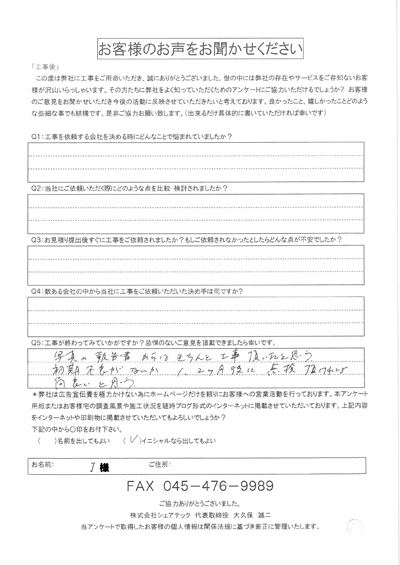 お客様のお声をお聞かせください
「工事後」
この度は弊社に工事をご用命いただき、誠にありがとうございました。世の中には弊社の存在やサービスをご存知ないお客
様が沢山いらっしゃいます。その方たちに弊社をよく知っていただくためのアンケートにご協力いただけるでしょうか？ お客様
のご意見をお聞かせいただき今後の活動に反映させていただきたいと考えております。良かったこと、嬉しかったことどのよう
な些細な事でも結構です。是非ご協力お願い致します。（出来るだけ具体的に書いていただければ幸いです）
Q1：工事を依頼する会社を決める時にどんなことで悩まれていましたか？
Q2：当社にご依頼いただく際にどのような点を比較・検討されましたか？
Q3：お見積り提出後すぐに工事をご依頼されましたか？もしご依頼されなかったとしたらどんな点が不安でしたか？
Q4：数ある会社の中から当社に工事をご依頼いただいた決め手は何ですか？
Q5：工事が終わってみていかがですか？忌憚のないご意見を頂戴できましたら幸いです。
写真の報告書からはきちんと工事頂いたと思う
初期不良がないか1、2ヶ月後に点検頂ければ
尚良いと思う
＊弊社は広告宣伝費を極力かけない為にホームページだけを頼りにお客様への営業活動を行っております。本アンケート
用紙またはお客様宅の調査風景や施工状況を随時ブログ形式のインターネットに掲載させていただいております。上記内容
をインターネットや印刷物に掲載させていただいてもよろしいでしょうか？
下記の中から○印をお付下さい。
（　）名前を出してもよい （✓）イニシャルなら出してもよい
お名前： 様 ご住所：
FAX 045-476-9989
ご協力ありがとうございました。
株式会社シェアテック 代表取締役 大久保 誠二
当アンケートで取得したお客様の個人情報は関係法規に基づき厳正に管理いたします。